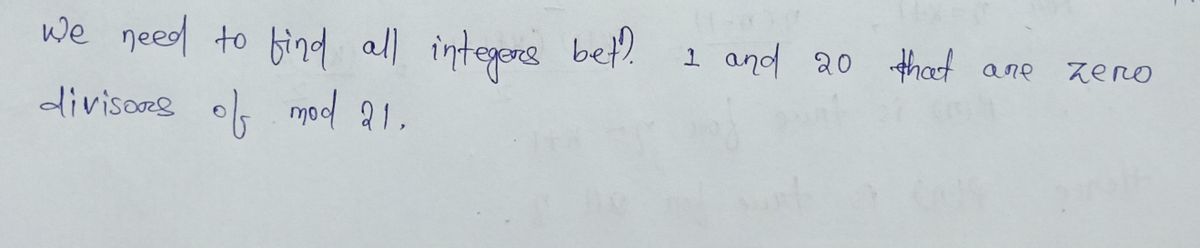 We need to find all integers betn. 1 and 20 that are zero
divisors of mod 21.